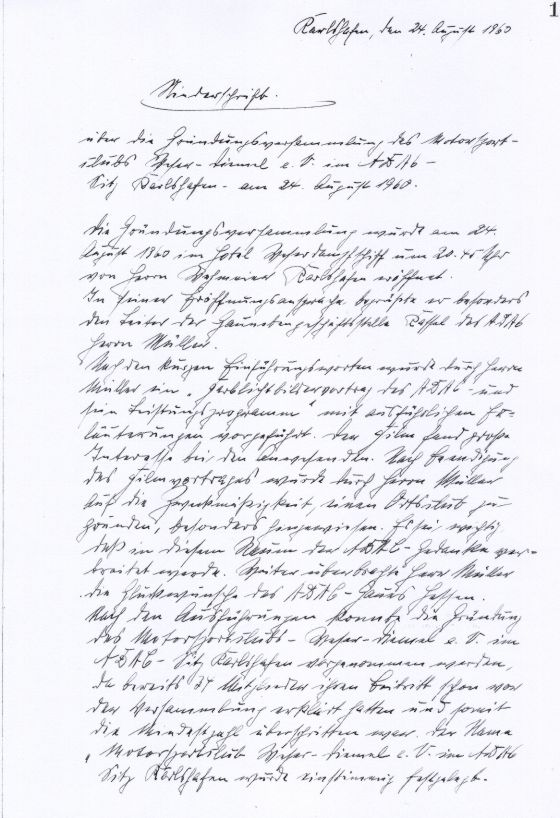 1
Karlshafen, den 24. August 1960
Niederschrift.
über die Gründungsversammlung des Motorsport-
clubs Weser-Diemel e. V. im ADAC -
Sitz Karlshafen - am 24. August 1960.
Die Gründungsversammlung wurde am 24.
August 1960 im Hotel Weserdampfschiff um 20.45 Uhr
von Herrn Wehmeier Karlshafen eröffnet.
In seiner Eröffnungsansprache begrüßte er besonders
den Leiter der Hauptgeschäftsstelle Kassel des ADAC
Herrn Müller.
Nach den kurzen Einführungsworten wurde durch Herrn
Müller ein „Farblichtbildervortrag des ADAC - und
sein Leistungsprogramm" mit ausführlichen Er-
läuterungen vorgeführt. Der Film fand große
Interesse bei den Anwesenden. Nach Beendigung
des Filmvortrages wurde durch Herrn Müller
auf die Zweckmäßigkeit, einen Ortsclub zu
gründen, besonders hingewiesen. Es sei wichtig
daß in diesem Raum der ADAC-Gedanke ver-
breitet werde. Weiter überbrachte Herr Müller
die Glückwünsche des ADAC-Gaues Hessen.
Nach den Ausführungen konnte die Gründung
des Motorsportclubs - Weser-Diemel e. V. im
ADAC - Sitz Karlshafen vorgenommen werden,
da bereits 34 Mitglieder ihren Beitritt schon vor
der Versammlung erklärt hatten und somit
die Mindestzahl überschritten war. Der Name
„Motorsportclub Weser-Diemel e. V. im ADAC
Sitz Karlshafen wurde einstimmig festgelegt.